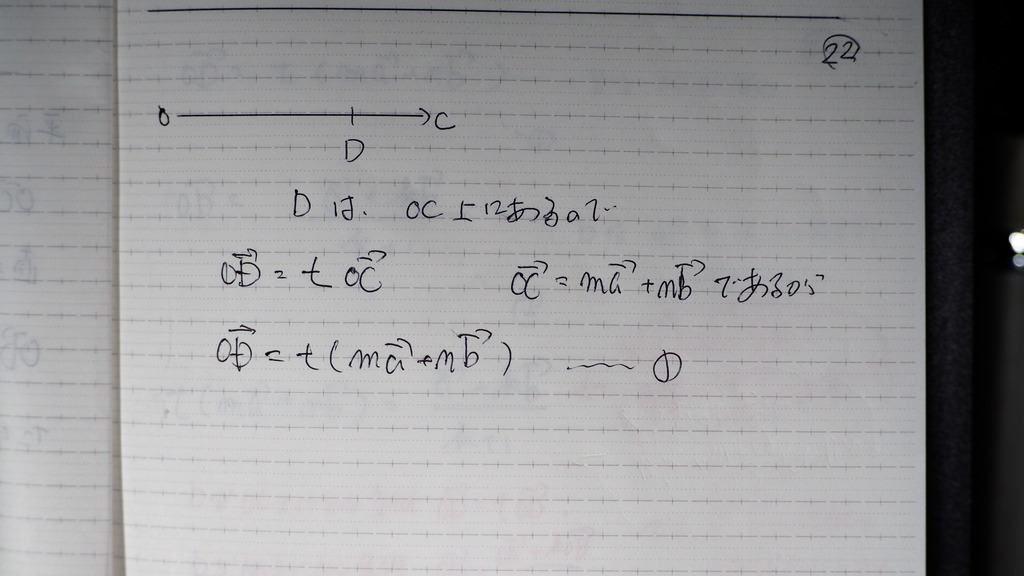 22
O C
D
Dは、OC上にあるので
OD = t OC OC = ma + nb であるから
OD = t(ma + nb) ― ①